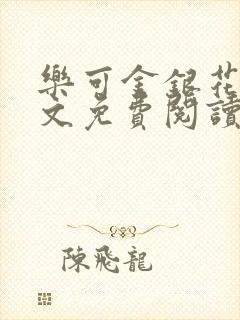 樂可金銀花
文免費閱讀
陳飛龍